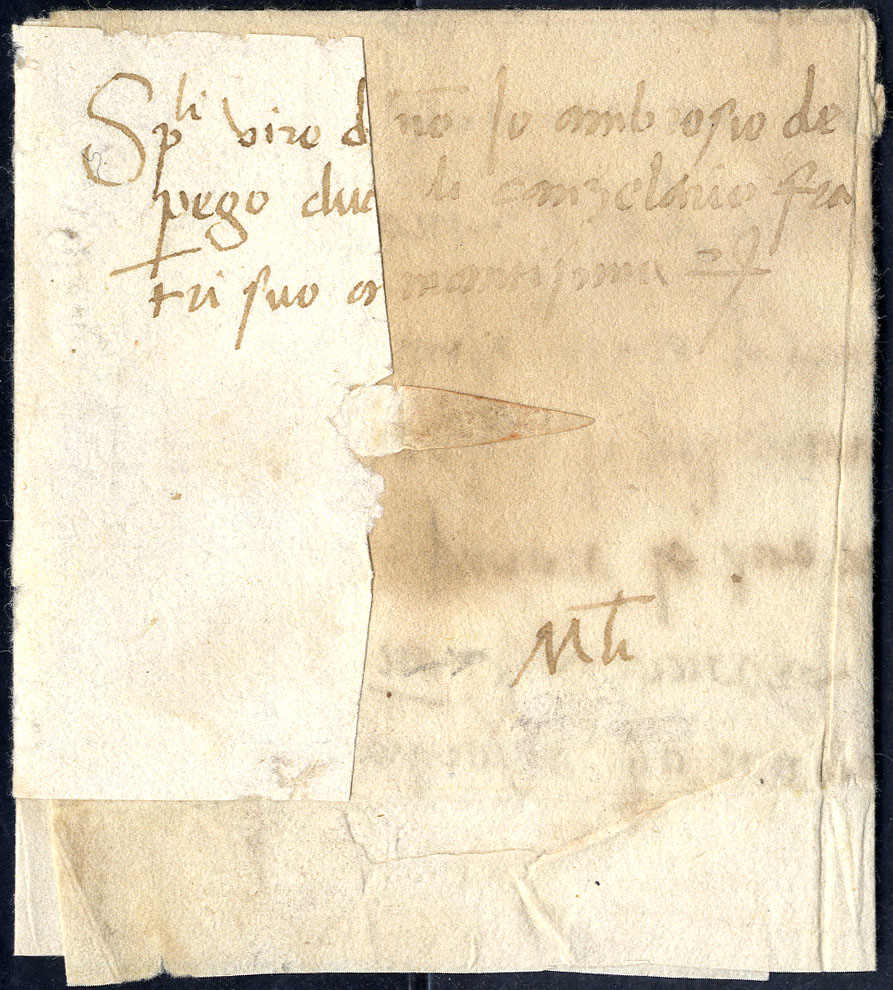 Spli viro dño Jo ambrosio de
pego ducali canzelario fra
tri suo amantisimo
Mli